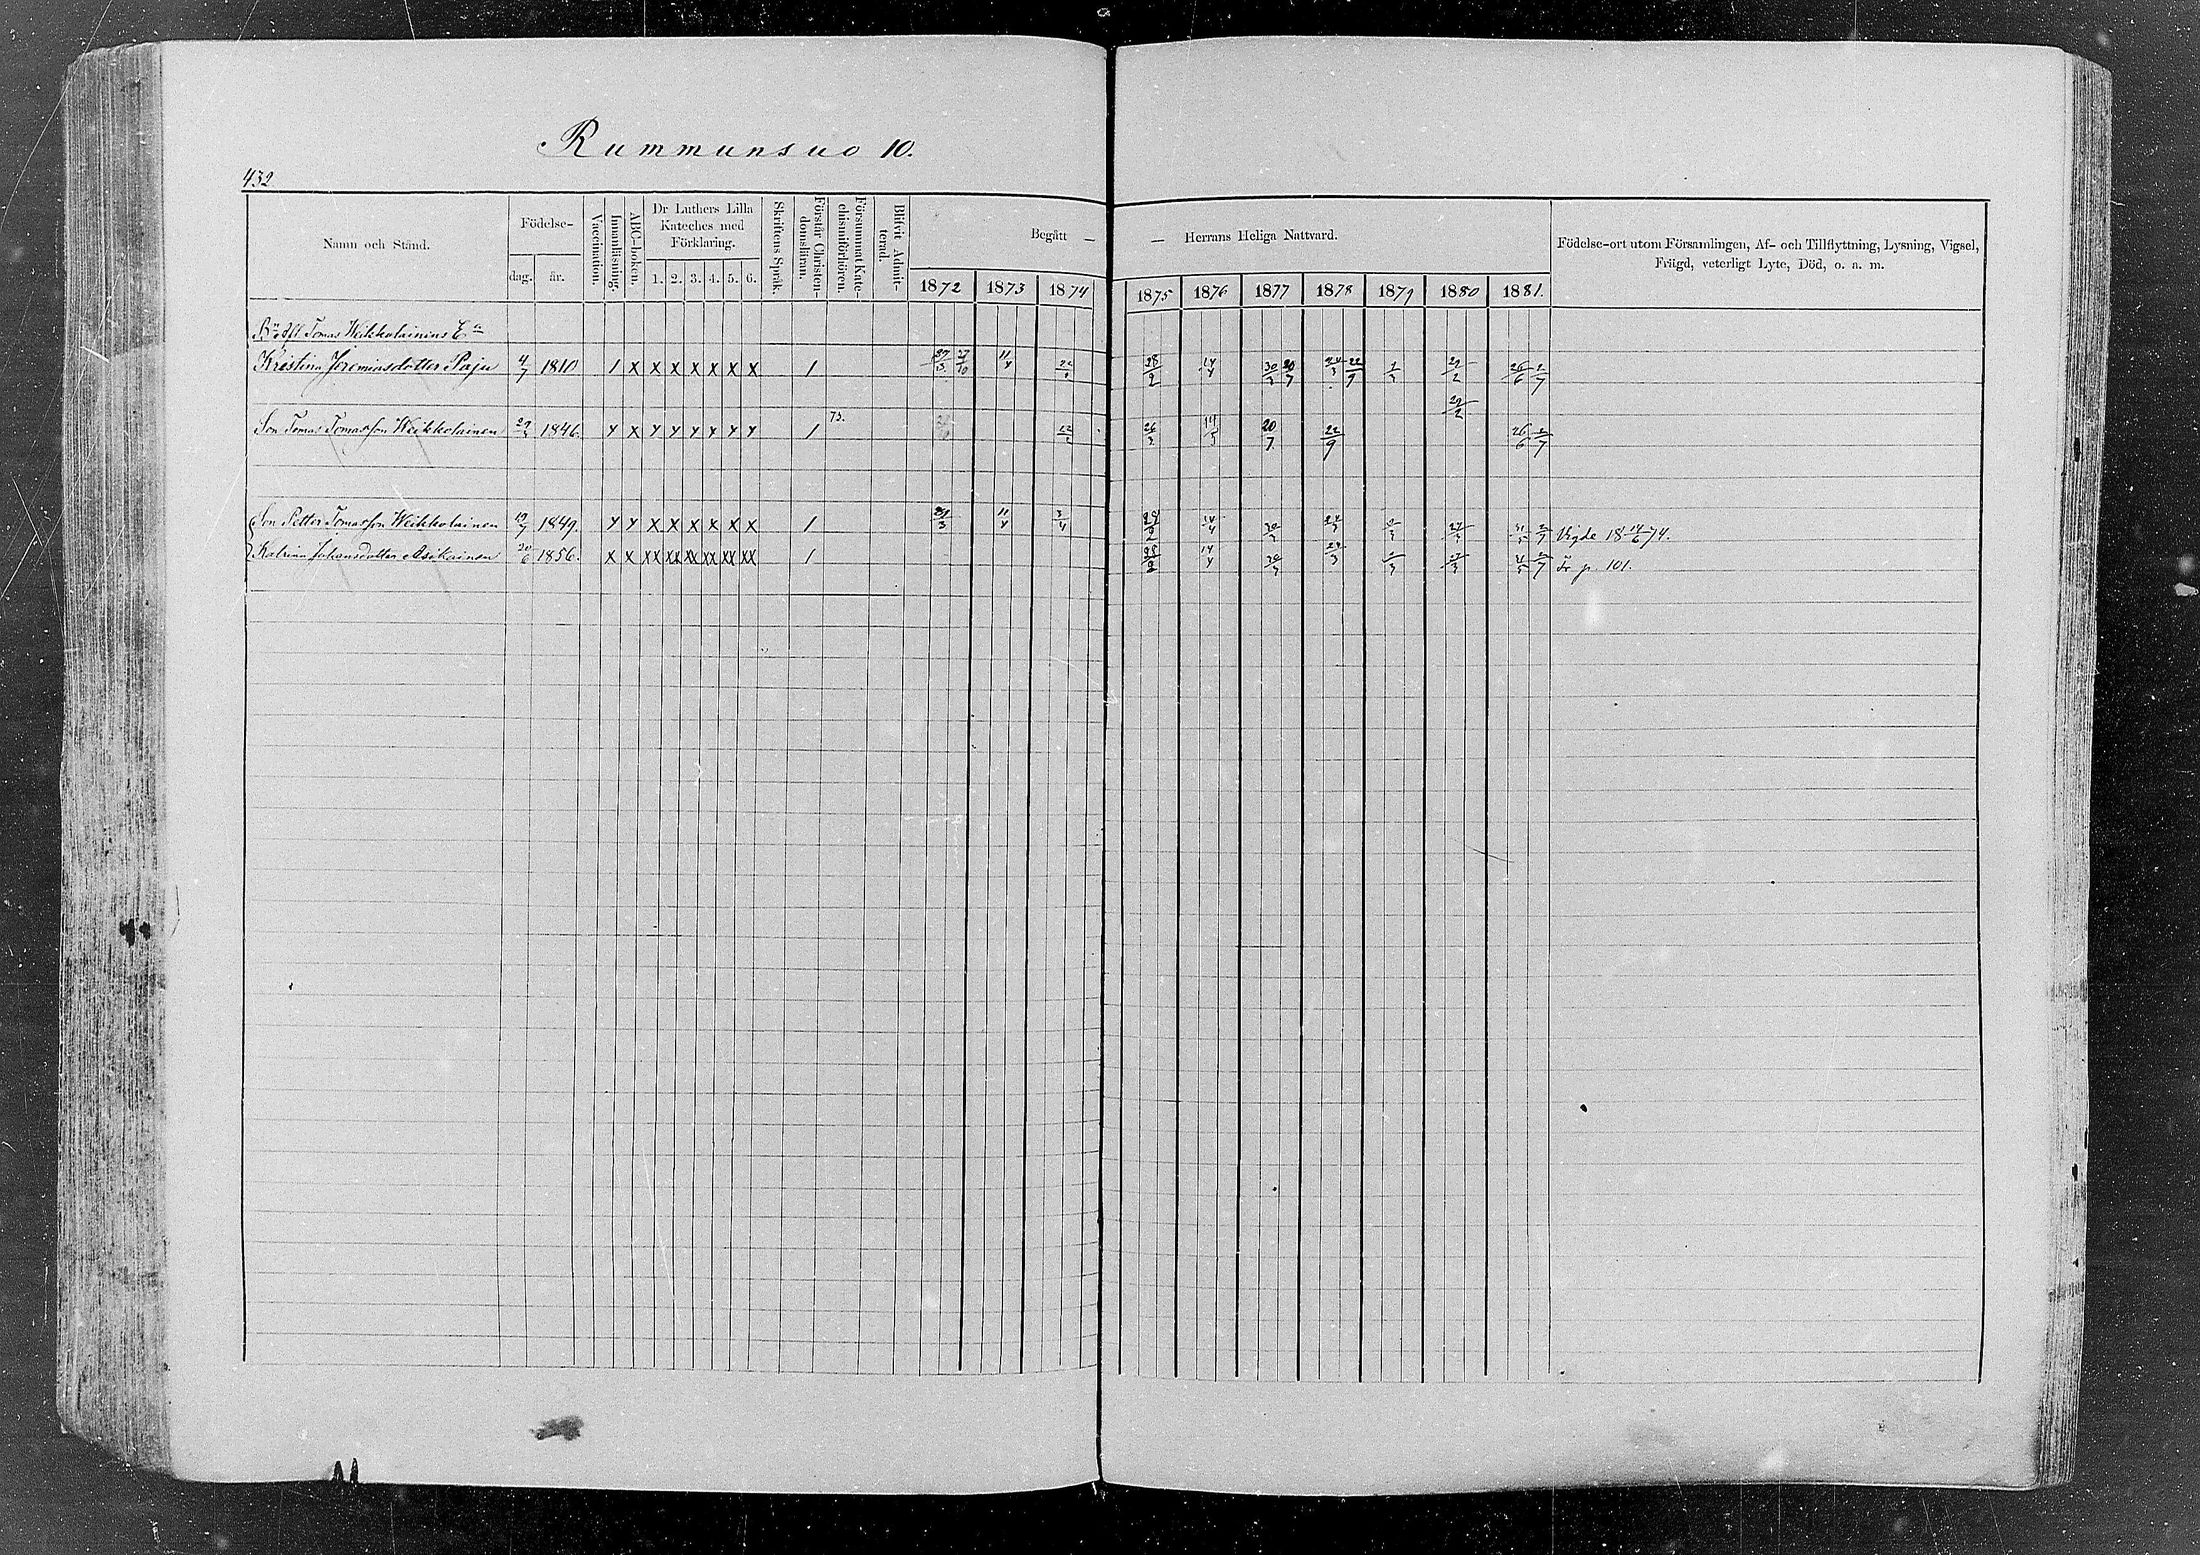 Rummunsuo 10.
432
Namn och Stånd.
Födelse-
dag. år.
Vaccination.
Innanläsning.
ABC-boken.
Dr Luthers Lilla Kateches med Förklaring.
1. 2. 3. 4. 5. 6.
Skriftens Språk.
Förstår Christendomsläran.
Försummat Katechismiförhören.
Blifvit Admitterad.
Begått — — Herrans Heliga Nattvard.
1872 1873 1874 1875 1876 1877 1878 1879 1880 1881.
Födelse-ort utom Församlingen, Af- och Tillflyttning, Lysning, Vigsel,
Frägd, veterligt Lyte, Död, o. a. m.
Tomas Weikkolainens Ea
Kristina Jeremiasdotter Paju 4/7 1810 1 X X X X X X X 1 27/10 11/4 28/2 14/4 20/7 22/9 22/2 26/6 2/7
22/2
Son Tomas Tomasson Weikkolainen 1846. X X X X X X X X 1 73. 14/5 20/7 22/9 26/6 2/7
Son Petter Tomasson Weikkolainen 19/7 1849. X X X X X X X X 1 11/4 3/4 14/4 Vigde 18 14/6 74.
Katrina Johansdotter Asikainen 20/6 1856. X X XX XX XX XX XX XX 1 14/4 Fr p. 101.